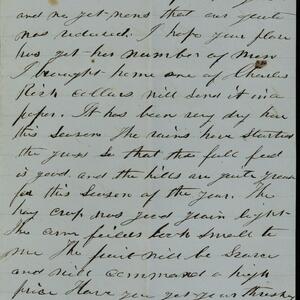 and no get mens that our quota
was reduced. I hope your place
has got her number of men
I brought home one of Charles
Rich collars will send it in a
paper. It has been very dry here
this season The rains have started
the grass so that the fall feed
is good. and the hills are quite green
for this season of the year. The
hay crop was good grain light
the corn fields look small to
me The fruit will be scarce
and will command a high
price Have you got your